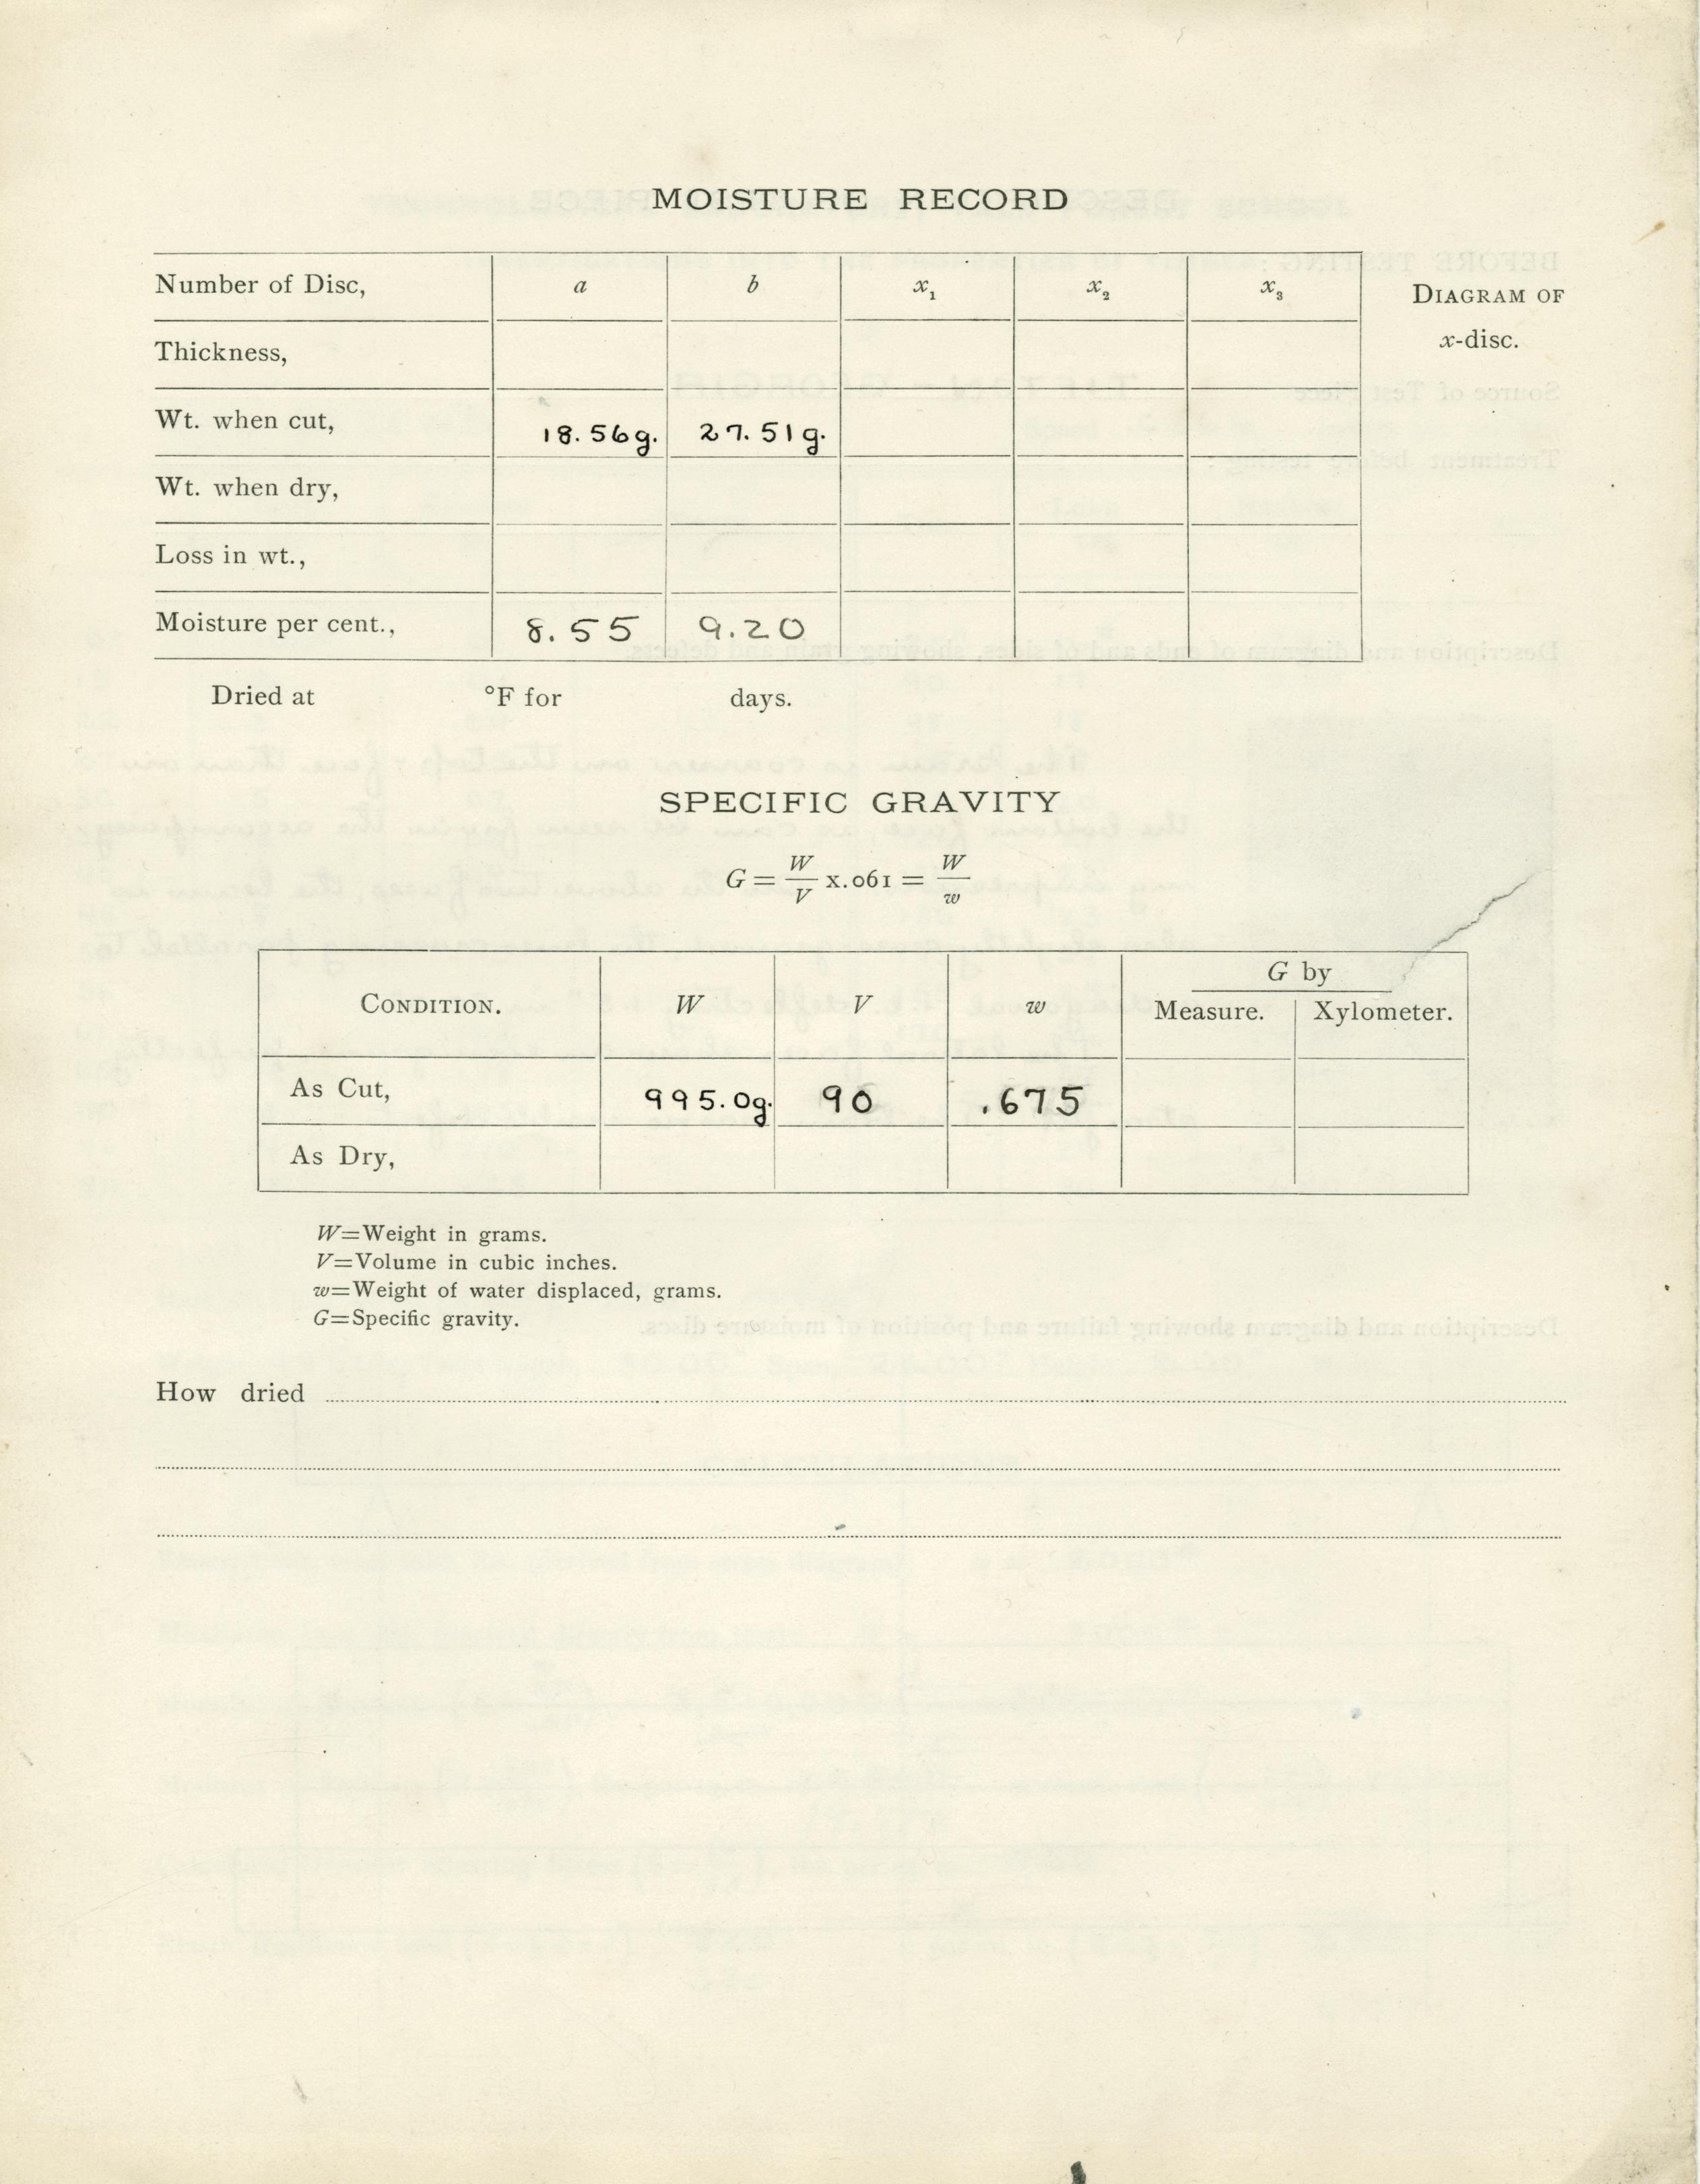 MOISTURE RECORD
Number of Disc, a b x₁ x₂ x₃
DIAGRAM OF
x-disc.
Thickness,
Wt. when cut, 18.56g. 27.51g.
Wt. when dry,
Loss in wt.,
Moisture per cent., 8.55 9.20
Dried at °F for days.
SPECIFIC GRAVITY
G = W/V x.061 = W/w
CONDITION. W V w G by
Measure. Xylometer.
As Cut, 995.0g. 90 .675
As Dry,
W=Weight in grams.
V=Volume in cubic inches.
w=Weight of water displaced, grams.
G=Specific gravity.
How dried